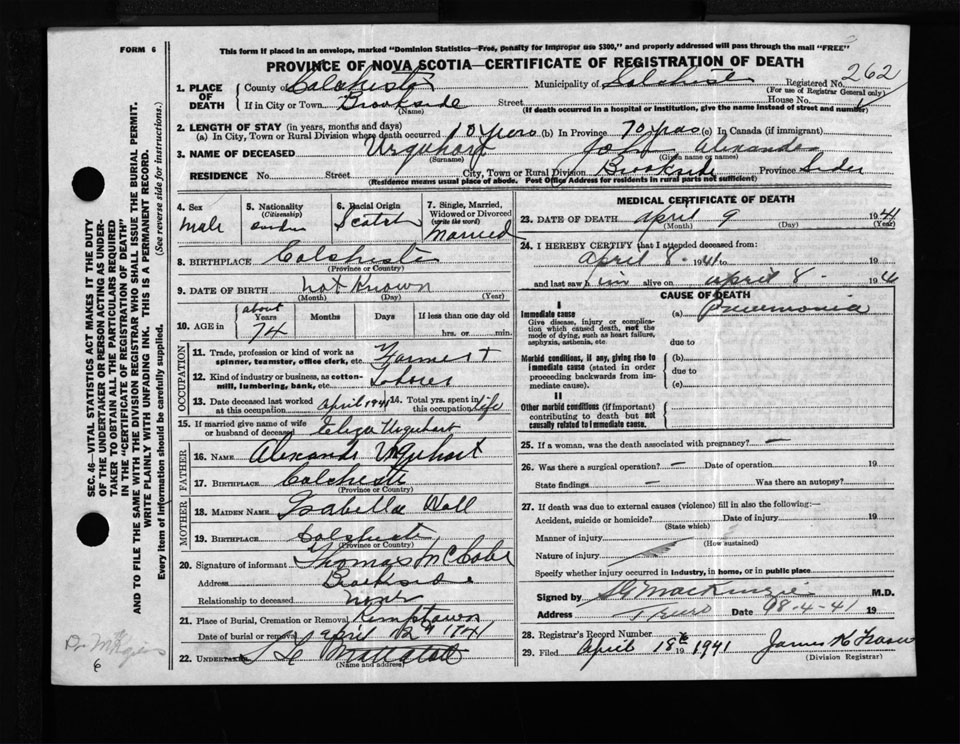 FORM 6
This form if placed in an envelope, marked "Dominion Statistics—Free, penalty for improper use $300," and properly addressed will pass through the mail "FREE"
PROVINCE OF NOVA SCOTIA—CERTIFICATE OF REGISTRATION OF DEATH
1. PLACE OF DEATH
County of Colchester Municipality of Colchester Registered No. 262
(For use of Registrar General only)
If in City or Town Brookside Street House No.
(Name) (If death occurred in a hospital or institution, give the name instead of street and number)
2. LENGTH OF STAY (in years, months and days)
(a) In City, Town or Rural Division where death occurred 10 years (b) In Province 70 years (c) In Canada (if immigrant)
3. NAME OF DECEASED Urquhart John Alexander
(Surname) (Given name or names)
RESIDENCE No. Street City, Town or Rural Division Brookside Province
(Residence means usual place of abode. Post Office Address for residents in rural parts not sufficient)
4. Sex
Male
5. Nationality
(Citizenship)
6. Racial Origin
Scotch
7. Single, Married, Widowed or Divorced
(write the word)
Married
8. BIRTHPLACE Colchester
(Province or Country)
9. DATE OF BIRTH not known
(Month) (Day) (Year)
10. AGE in
about
Years Months Days If less than one day old
74 hrs. or min.
OCCUPATION
11. Trade, profession or kind of work as
spinner, teamster, office clerk, etc. Farmer +
12. Kind of industry or business, as cotton-
mill, lumbering, bank, etc.
13. Date deceased last worked
at this occupation April 1941
14. Total yrs. spent in
this occupation life
15. If married give name of wife
or husband of deceased Eliza Urquhart
FATHER
16. NAME Alexander Urquhart
17. BIRTHPLACE Colchester
(Province or Country)
MOTHER
18. MAIDEN NAME Isabella
19. BIRTHPLACE Colchester
(Province or Country)
20. Signature of informant Thomas McCabe
Address Brookside
Relationship to deceased none
21. Place of Burial, Cremation or Removal Kemptown
Date of burial or removal April
22. UNDERTAKER
(Name and address)
MEDICAL CERTIFICATE OF DEATH
23. DATE OF DEATH April 9 1941
(Month) (Day) (Year)
24. I HEREBY CERTIFY that I attended deceased from:
April 8 1941 to 19
and last saw him alive on April 8 194
CAUSE OF DEATH
I
Immediate cause (a) Pneumonia
Give disease, injury or complica-
tion which caused death, not the
mode of dying, such as heart failure,
asphyxia, asthenia, etc due to
Morbid conditions, if any, giving rise to
immediate cause (stated in order
proceeding backwards from im-
mediate cause).
(b)
due to
(c)
II
Other morbid conditions (if important)
contributing to death but not
causally related to immediate cause.
25. If a woman, was the death associated with pregnancy? —
26. Was there a surgical operation? — Date of operation 19
State findings — Was there an autopsy?
27. If death was due to external causes (violence) fill in also the following:—
Accident, suicide or homicide? Date of injury 19
(State which)
Manner of injury
(How sustained)
Nature of injury
Specify whether injury occurred in industry, in home, or in public place
Signed by MacKenzie M.D.
Address Truro Date 4-41 19
28. Registrar's Record Number
29. Filed April 18th 1941 James K Fraser
(Division Registrar)
SEC. 46—VITAL STATISTICS ACT MAKES IT THE DUTY
OF THE UNDERTAKER OR PERSON ACTING AS UNDER-
TAKER TO OBTAIN ALL THE PARTICULARS REQUIRED
IN THE "CERTIFICATE OF REGISTRATION OF DEATH"
AND TO FILE THE SAME WITH THE DIVISION REGISTRAR WHO SHALL ISSUE THE BURIAL PERMIT.
WRITE PLAINLY WITH UNFADING INK. THIS IS A PERMANENT RECORD.
Every item of information should be carefully supplied. (See reverse side for instructions.)
6